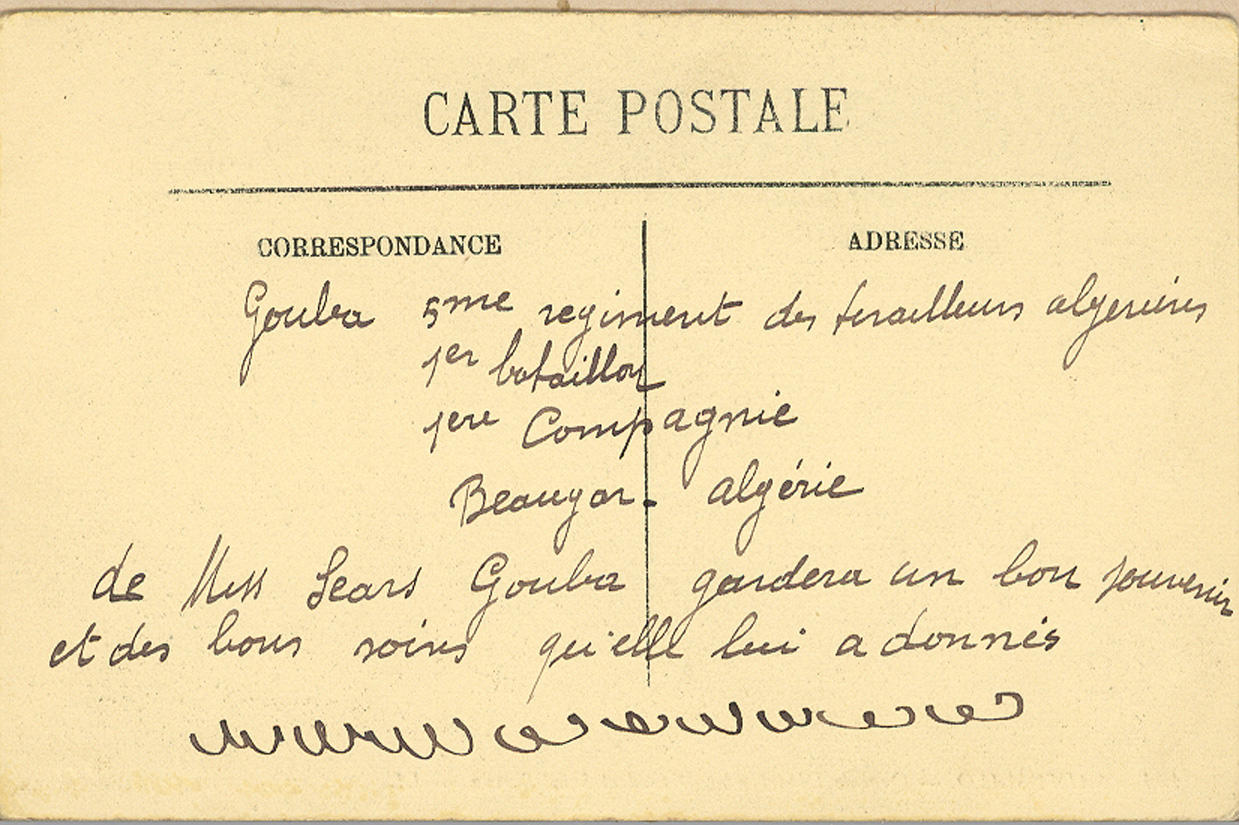 CARTE POSTALE
CORRESPONDANCE ADRESSE
Gouba 5me regiment des tirailleurs algeriéns
1er bataillon
1ere Compagnie
algérie
de Miss Sears Gouba gardera un bon souvenir
et des bons soins qu'elle lui a donnés